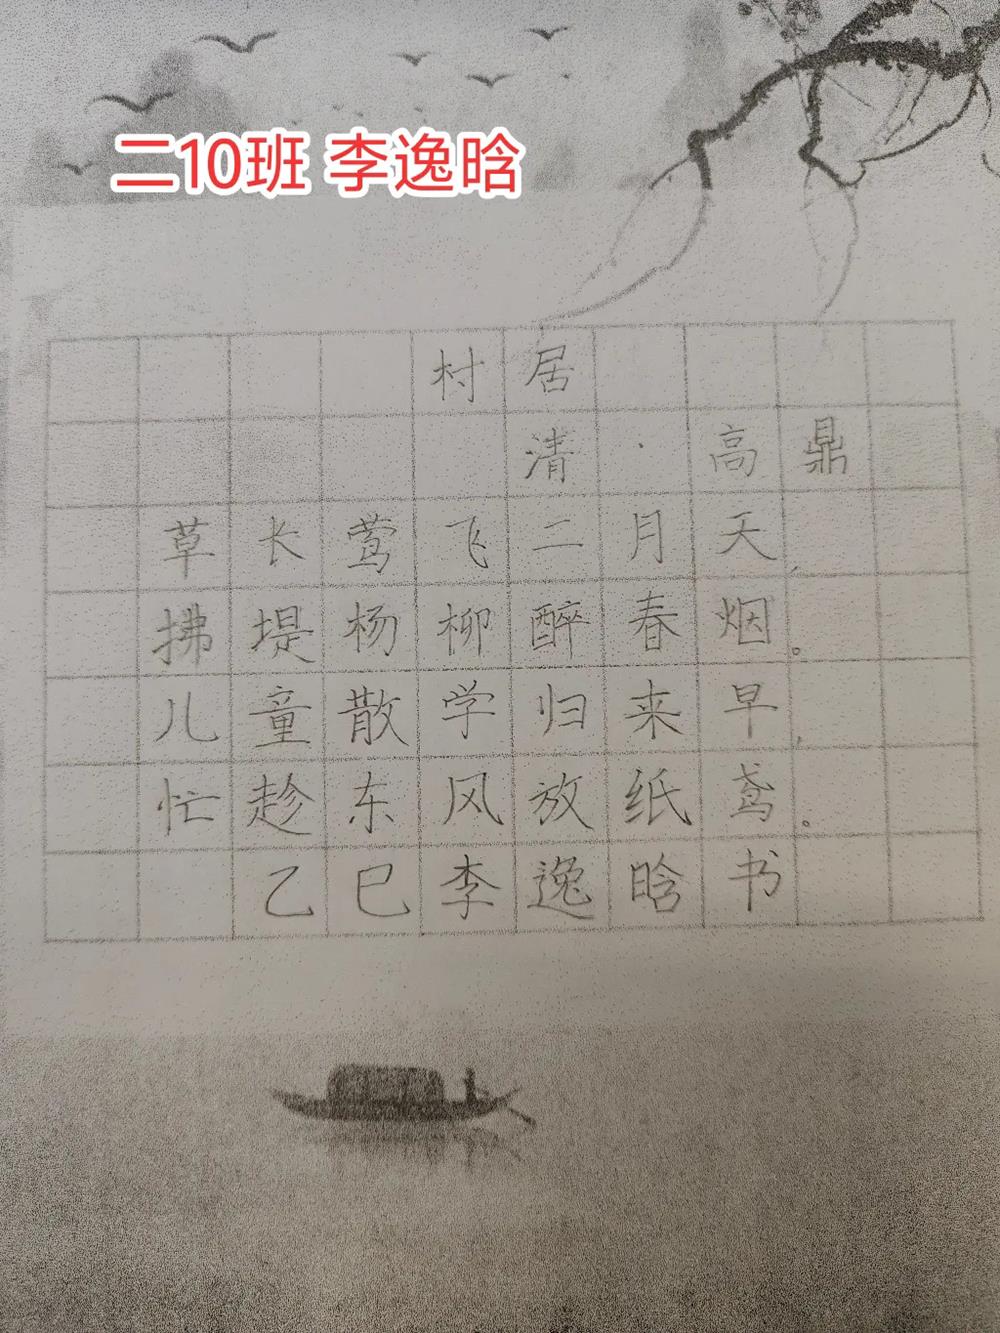 二10班 李逸晗
村居
清·高鼎
草长莺飞二月天，
拂堤杨柳醉春烟。
儿童散学归来早，
忙趁东风放纸鸢。
乙巳李逸晗书